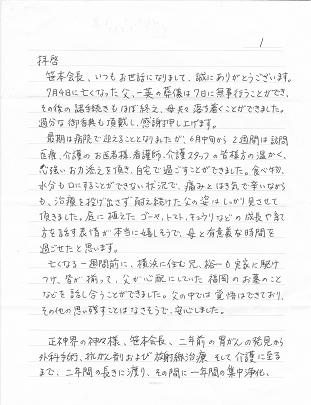 1
拝啓
笹本会長、いつもお世話になりまして、誠にありがとうございます。
7月4日に亡くなった父、一英の葬儀は7日に無事行うことができ、
その後の諸手続きもほぼ終え、母共々落ち着くことができました。
過分な御香典も頂戴し、感謝申し上げます。
最期は病院で迎えることとなりましたが、6月中旬から2週間は訪問
医療、介護のお医者様、看護師、介護スタッフの皆様方の温かく、
心強いお力添えを頂き、自宅で過ごすことができました。食べ物、
水分も口にすることができない状況で、痛みとはき気で辛いながら
も、治療を投げ出さず耐え続けた父の姿はしっかり見させて
頂きました。庭に植えたゴーヤ、トマト、キュウリなどの成長や育て
方を話す表情が本当に嬉しそうで、母と有意義な時間を
過ごせたと思います。
亡くなる一週間前に、横浜に住む兄、裕一も実家に駆け
つけ、皆が揃って、父が心配にしていた福岡のお墓のこと
などを話し合うことができました。父の中では覚悟はできており、
その他の思い残すことはなさそうで、安心しました。
正神界の神々様、笹本会長、二年前の胃がんの発見から
外科手術、抗がん剤および放射線治療 そして介護に至る
まで、二年間の長きに渡り、その間に一年間の集中浄化、